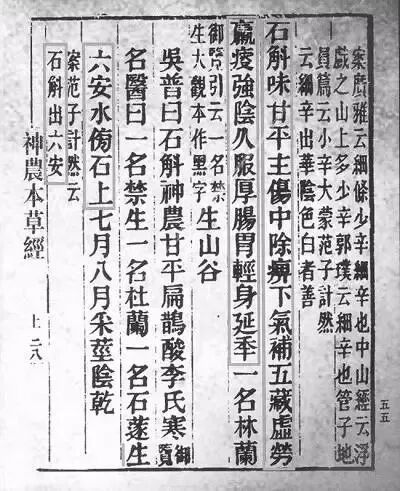 五五
案廣雅云細條少辛細辛也中山經云浮
戲之山上多少辛郭璞云細辛也管子地
員篇云小辛大蒙范子計然
云細辛出華陰色白者善
石斛味甘平主傷中除痹下氣補五藏虛勞
羸瘦強陰久服厚腸胃輕身延年一名林蘭
御覽引云一名禁
生大觀本作黑字
生山谷
吳普曰石斛神農甘平扁鵲酸李氏寒御覽
名醫曰一名禁生一名杜蘭一名石蓫生
六安水傍石上七月八月采莖陰乾
案范子計然云
石斛出六安
神農本草經 上 二八